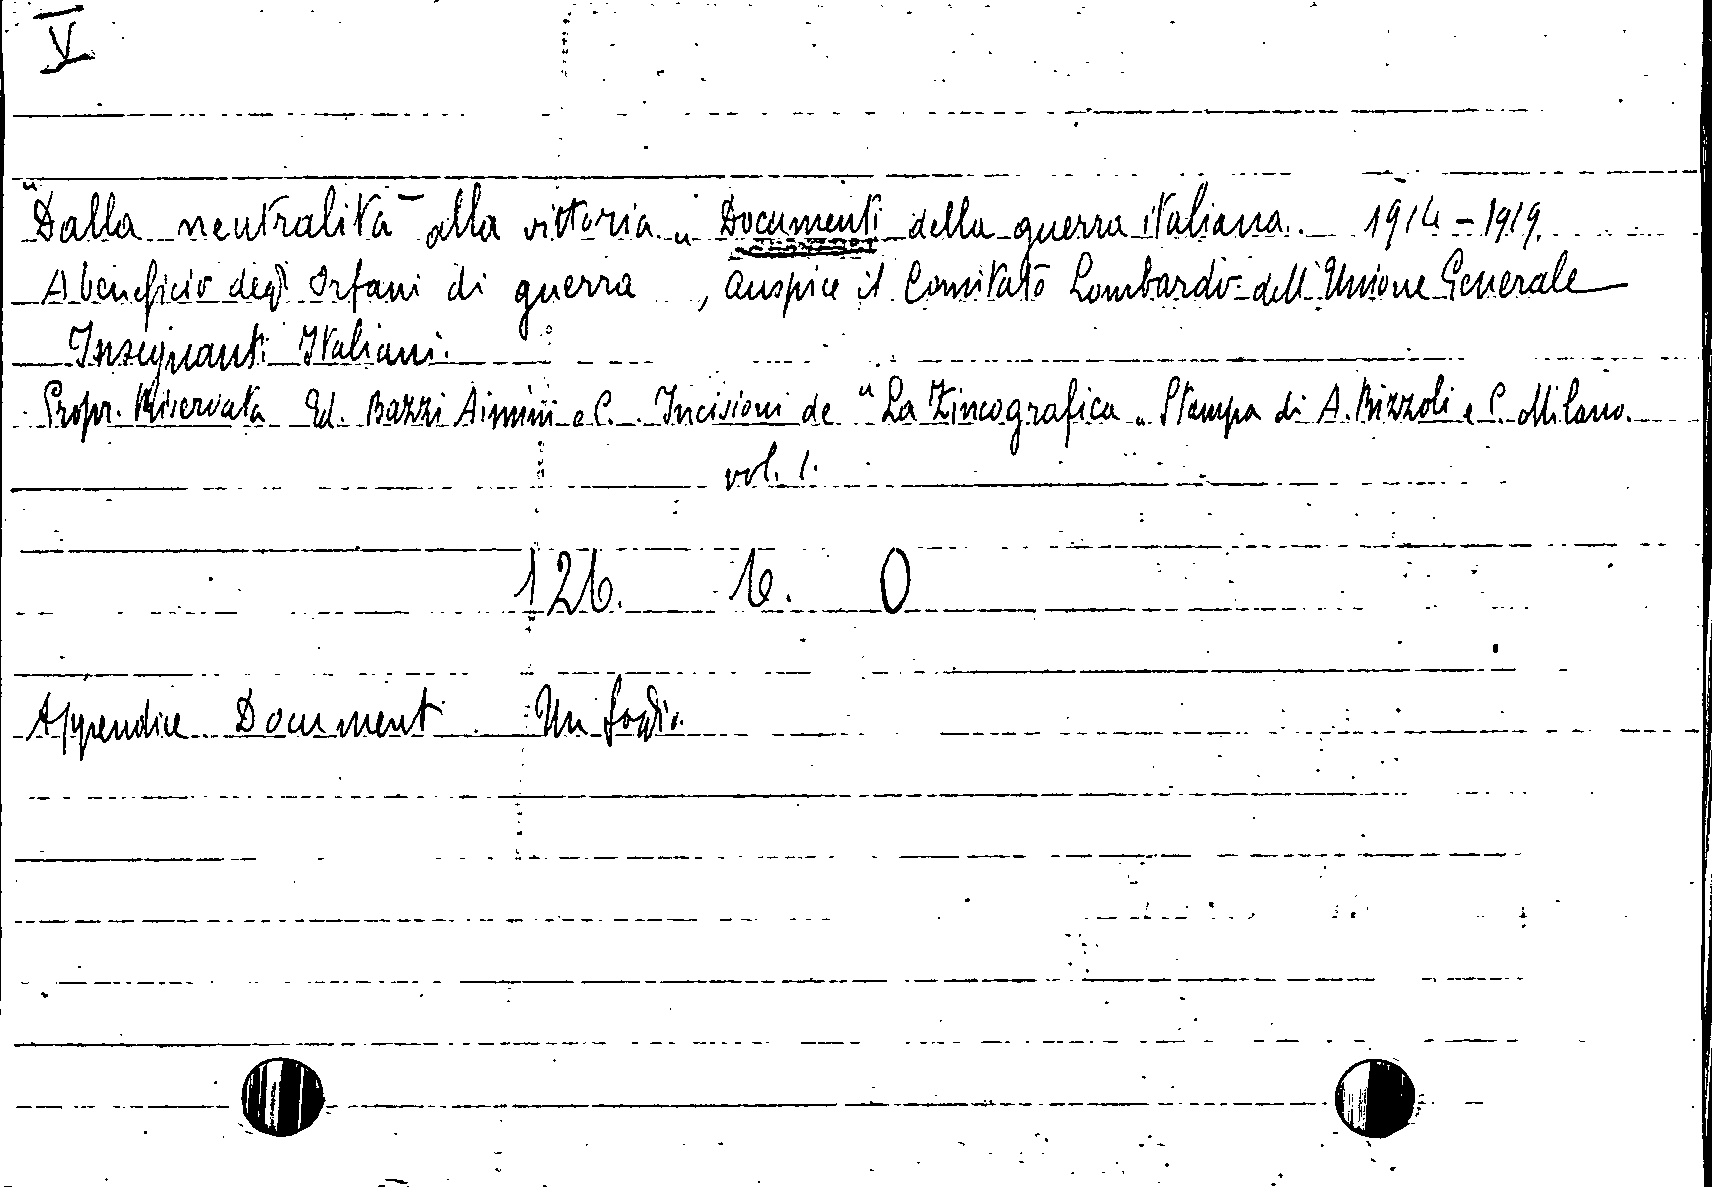 V
"Dalla neutralità alla vittoria" Documenti della guerra italiana. 1914-1919.
A beneficio degl' Orfani di guerra, auspice il Comitato Lombardo dell'Unione Generale
Insegnanti Italiani.
Propr. Riservata Ed. Bazzi Aimini e C. Incisioni de "La Zincografica" Stampa di A. Rizzoli e C. Milano.
vol. 1.
126. 16. O
Appendice Document Un foglio